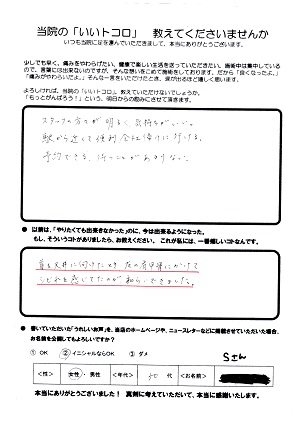 当院の「いいトコロ」 教えてくださいませんか
いつも当院に足を運んでいただきまして、本当にありがとうございます。
少しでも早く、痛みをやわらげたい、健康で楽しい生活を送っていただきたい。施術中は集中しているので、言葉には出来ないのですが、そんな想いをこめて施術をしております。だから「良くなったよ。」
「痛みがやわらいだよ。」 そんな一言をいただけたとき、涙が出るほど嬉しく思います。
よろしければ、当院の「いいトコロ」を教えていただけないでしょうか。
「もっとがんばろう！」という、明日からの励みにさせて頂きます。
スタッフの方が明るく気持ちがいい。
駅から近くて便利 会社帰りに行ける。
予約できる、待つことがあまりない。
● 以前は、「やりたくても出来きなかった」のに、今は出来るようになった。
もし、そういうコトがありましたら、お教えください。 これが私には、一番嬉しいコトなんです。
首を天井に向けたとき 左の背中案にかけて
しびれを感じてたのが 和らいできました。
● 書いていただいた「うれしいお声」を、当店のホームページや、ニュースレターなどに掲載させていただいた場合、
お名前を公開してもよろしいですか？
① OK ②イニシャルならOK ③ ダメ
Sさん
<性> 女性・男性 <年代> 30 代 <お名前>
本当にありがとうございました！ 真剣に考えていただいて、本当に感謝いたします。